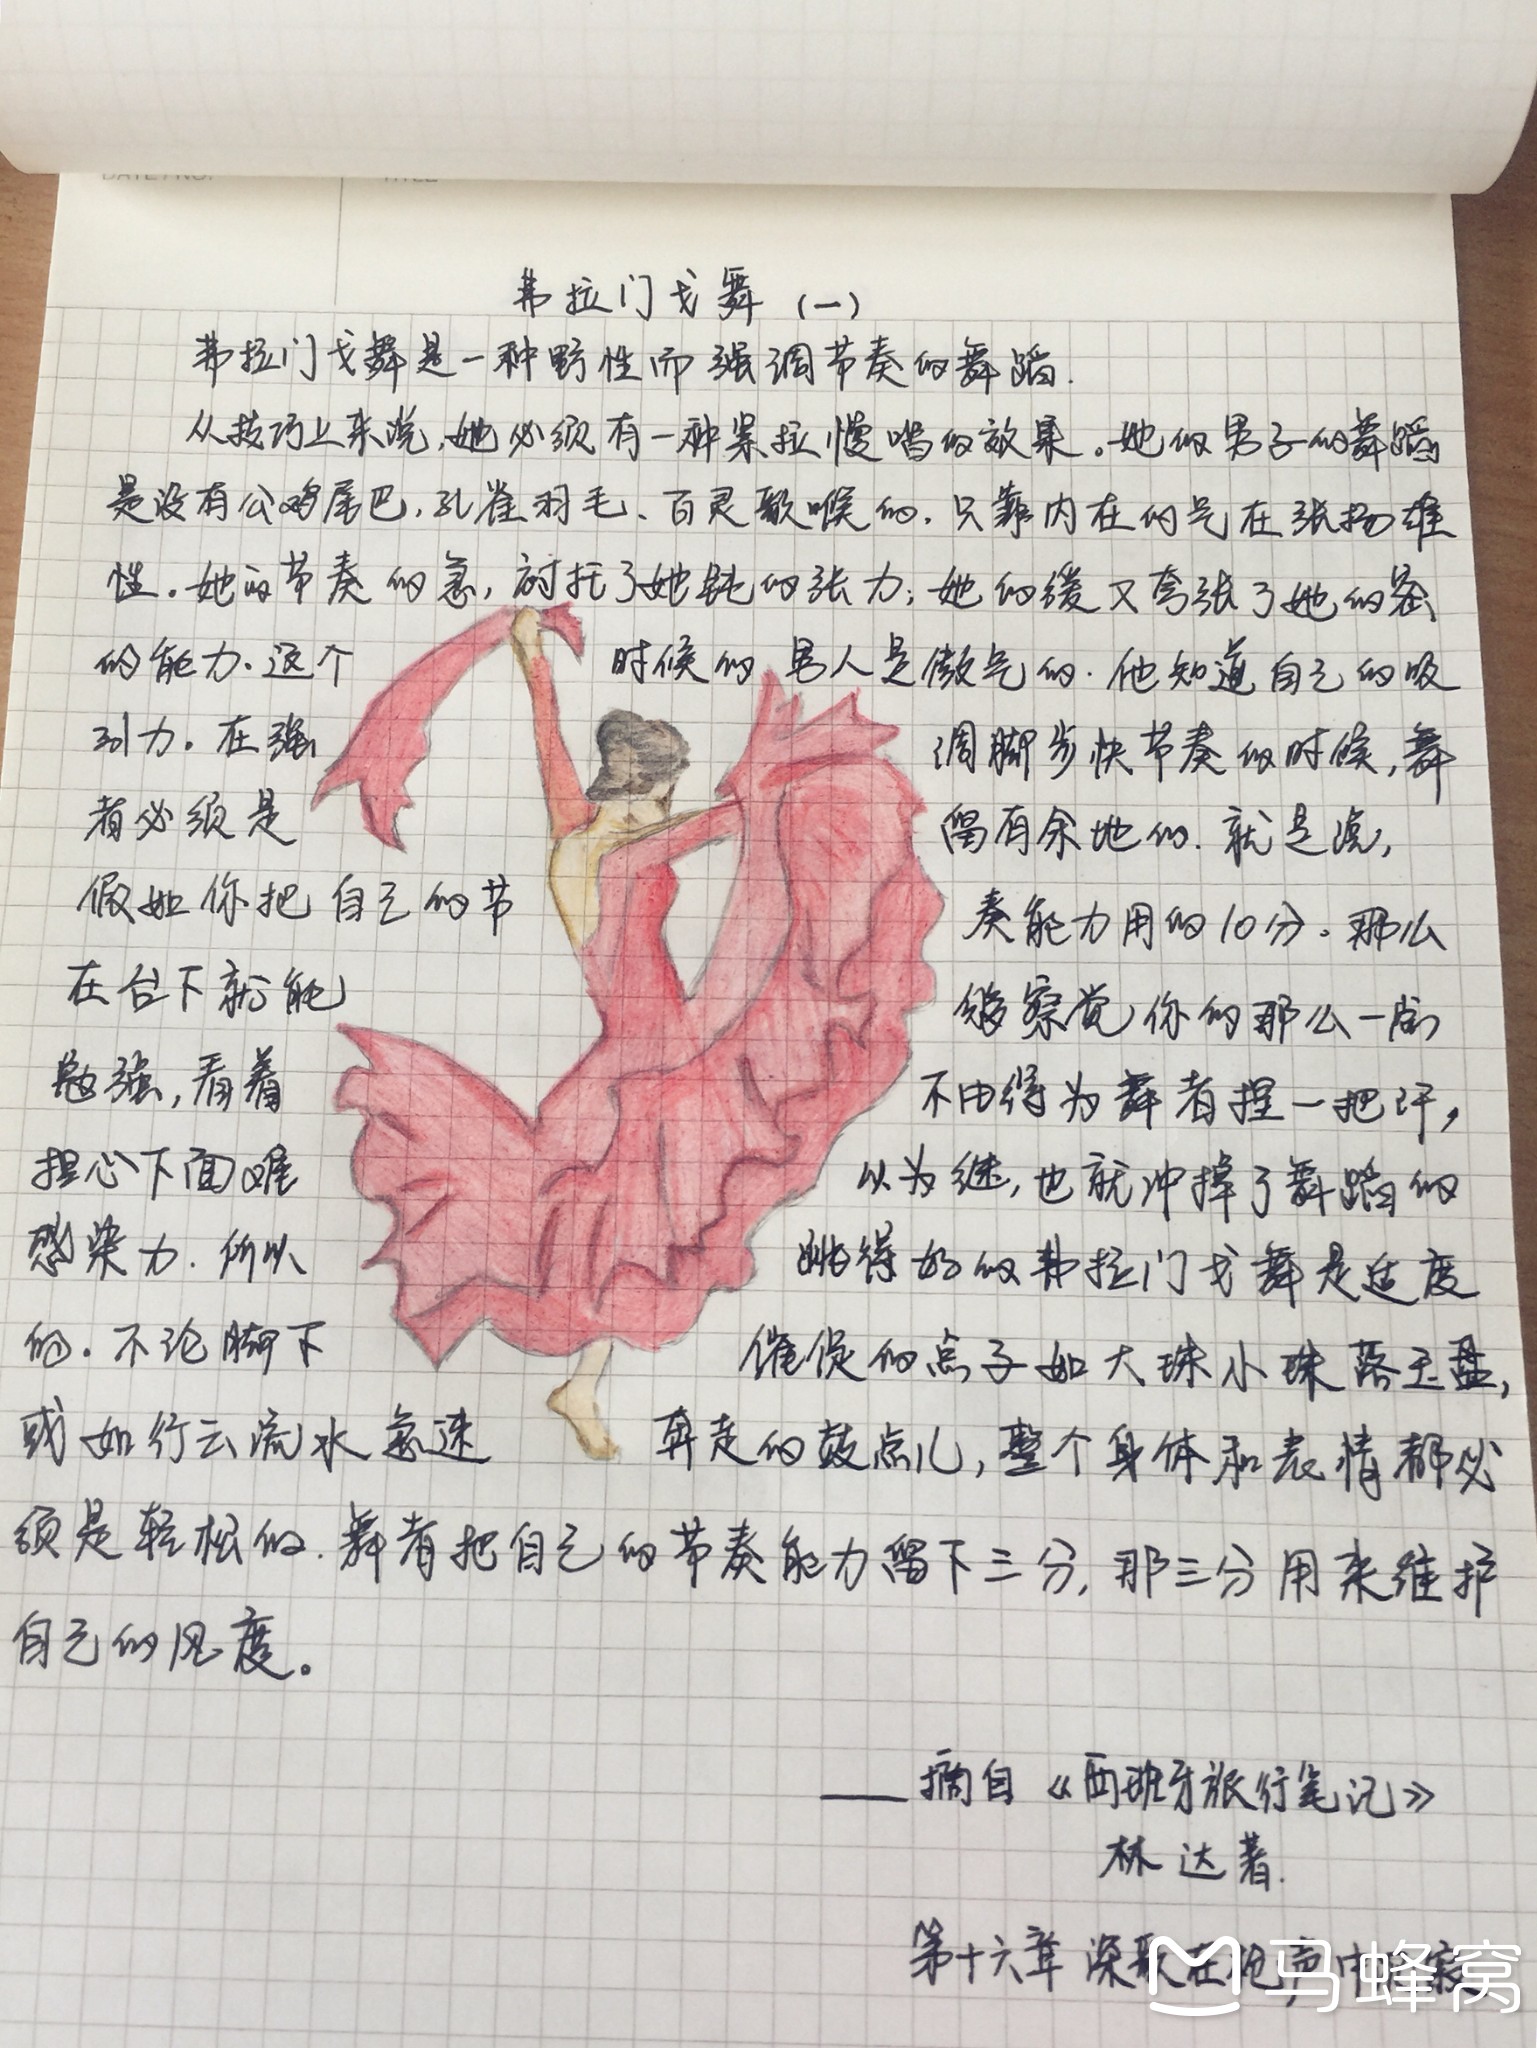 DATE / NO. TITLE
弗拉门戈舞(一)
弗拉门戈舞是一种野性而强调节奏的舞蹈.
从技巧上来说,她必须有一种紧拉慢唱的效果。她的男子的舞蹈
是没有公鸡尾巴,孔雀羽毛、百灵歌喉的,只靠内在的气在张扬雄
性。她的节奏的急,衬托了她的张力;她的缓又夸张了她的
的能力.这个 时候的男人是傲气的.他知道自己的吸
引力。在强 调脚步快节奏的时候,舞
者必须是 留有余地的.就是说,
假如你把自己的节 奏能力用的10分。那么
在台下就能 够察觉你的那么一点
勉强,看着 不由得为舞者捏一把汗,
担心下面难 以为继,也就冲掉了舞蹈的
感染力.所以 跳得好的弗拉门戈舞是适度
的。不论脚下 催促的点子如大珠小珠落玉盘,
或如行云流水急速 奔走的鼓点儿,整个身体和表情都必
须是轻松的.舞者把自己的节奏能力留下三分,那三分用来维护
自己的风度。
——摘自《西班牙旅行笔记》
林达著.
第十六章 深歌在枪声中
马蜂窝